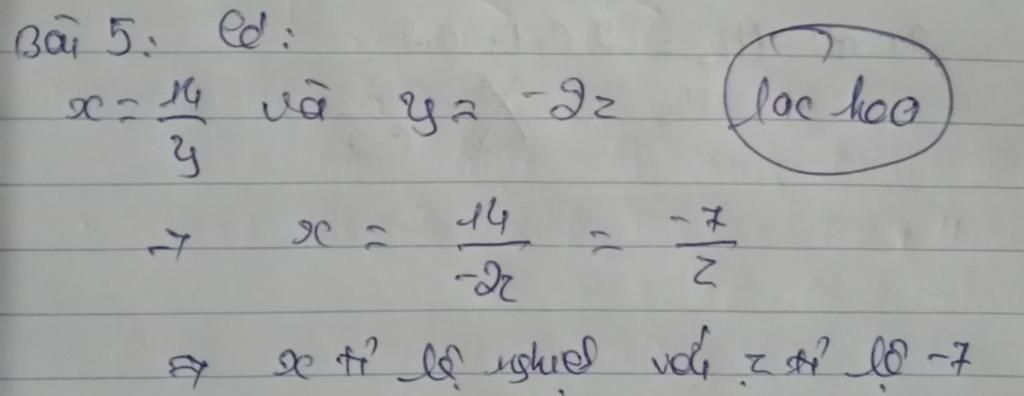 Bài 5: Có:
x = 14/y và y = -2z
lạc hoa
→ x = 14/-2z = -7/z
⇒ x tỉ lệ nghịch với z tỉ lệ -7